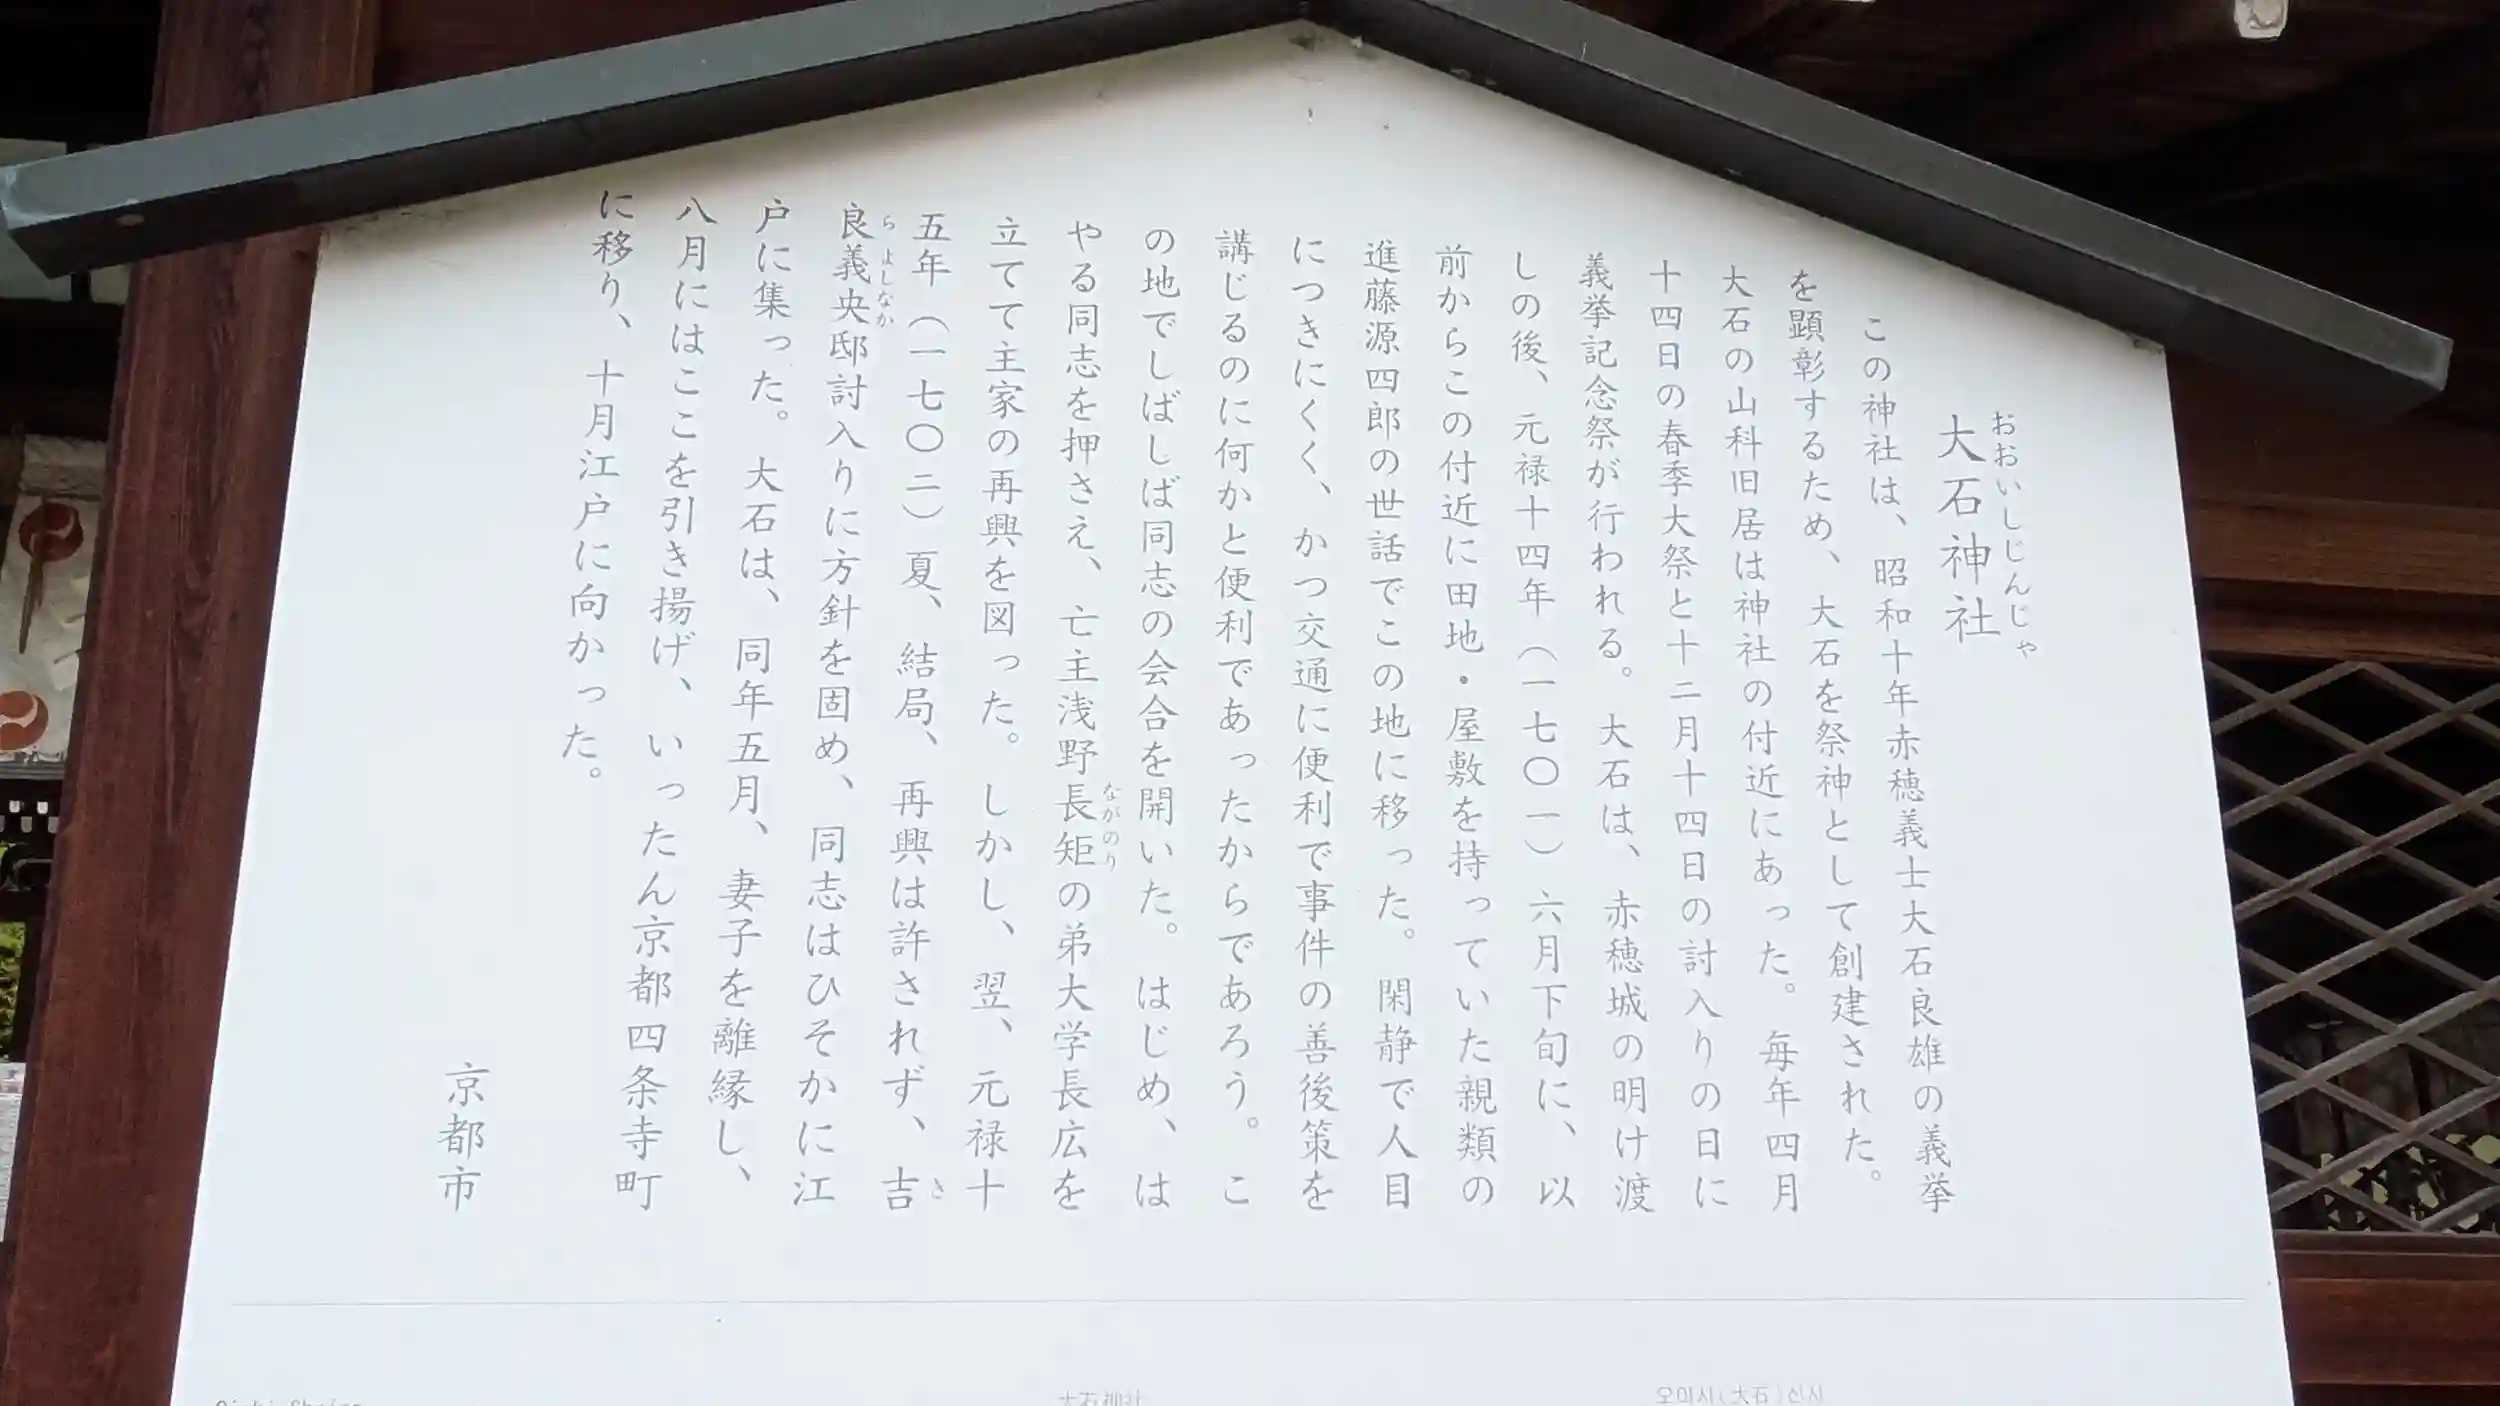 大石神社
おおいしじんじゃ
この神社は、昭和十年赤穂義士大石良雄の義挙
を顕彰するため、大石を祭神として創建された。
大石の山科旧居は神社の付近にあった。毎年四月
十四日の春季大祭と十二月十四日の討入りの日に
義挙記念祭が行われる。大石は、赤穂城の明け渡
しの後、元禄十四年（一七〇一）六月下旬に、以
前からこの付近に田地・屋敷を持っていた親類の
進藤源四郎の世話でこの地に移った。閑静で人目
につきにくく、かつ交通に便利で事件の善後策を
講じるのに何かと便利であったからであろう。こ
の地でしばしば同志の会合を開いた。はじめ、は
やる同志を押さえ、亡主浅野長矩の弟大学長広を
ながのり
立てて主家の再興を図った。しかし、翌、元禄十
五年（一七〇二）夏、結局、再興は許されず、吉
き
良義央邸討入りに方針を固め、同志はひそかに江
らよしなか
戸に集った。大石は、同年五月、妻子を離縁し、
八月にはここを引き揚げ、いったん京都四条寺町
に移り、十月江戸に向かった。
京都市
Oishi Shrine
大石神社
오이시(大石)신사